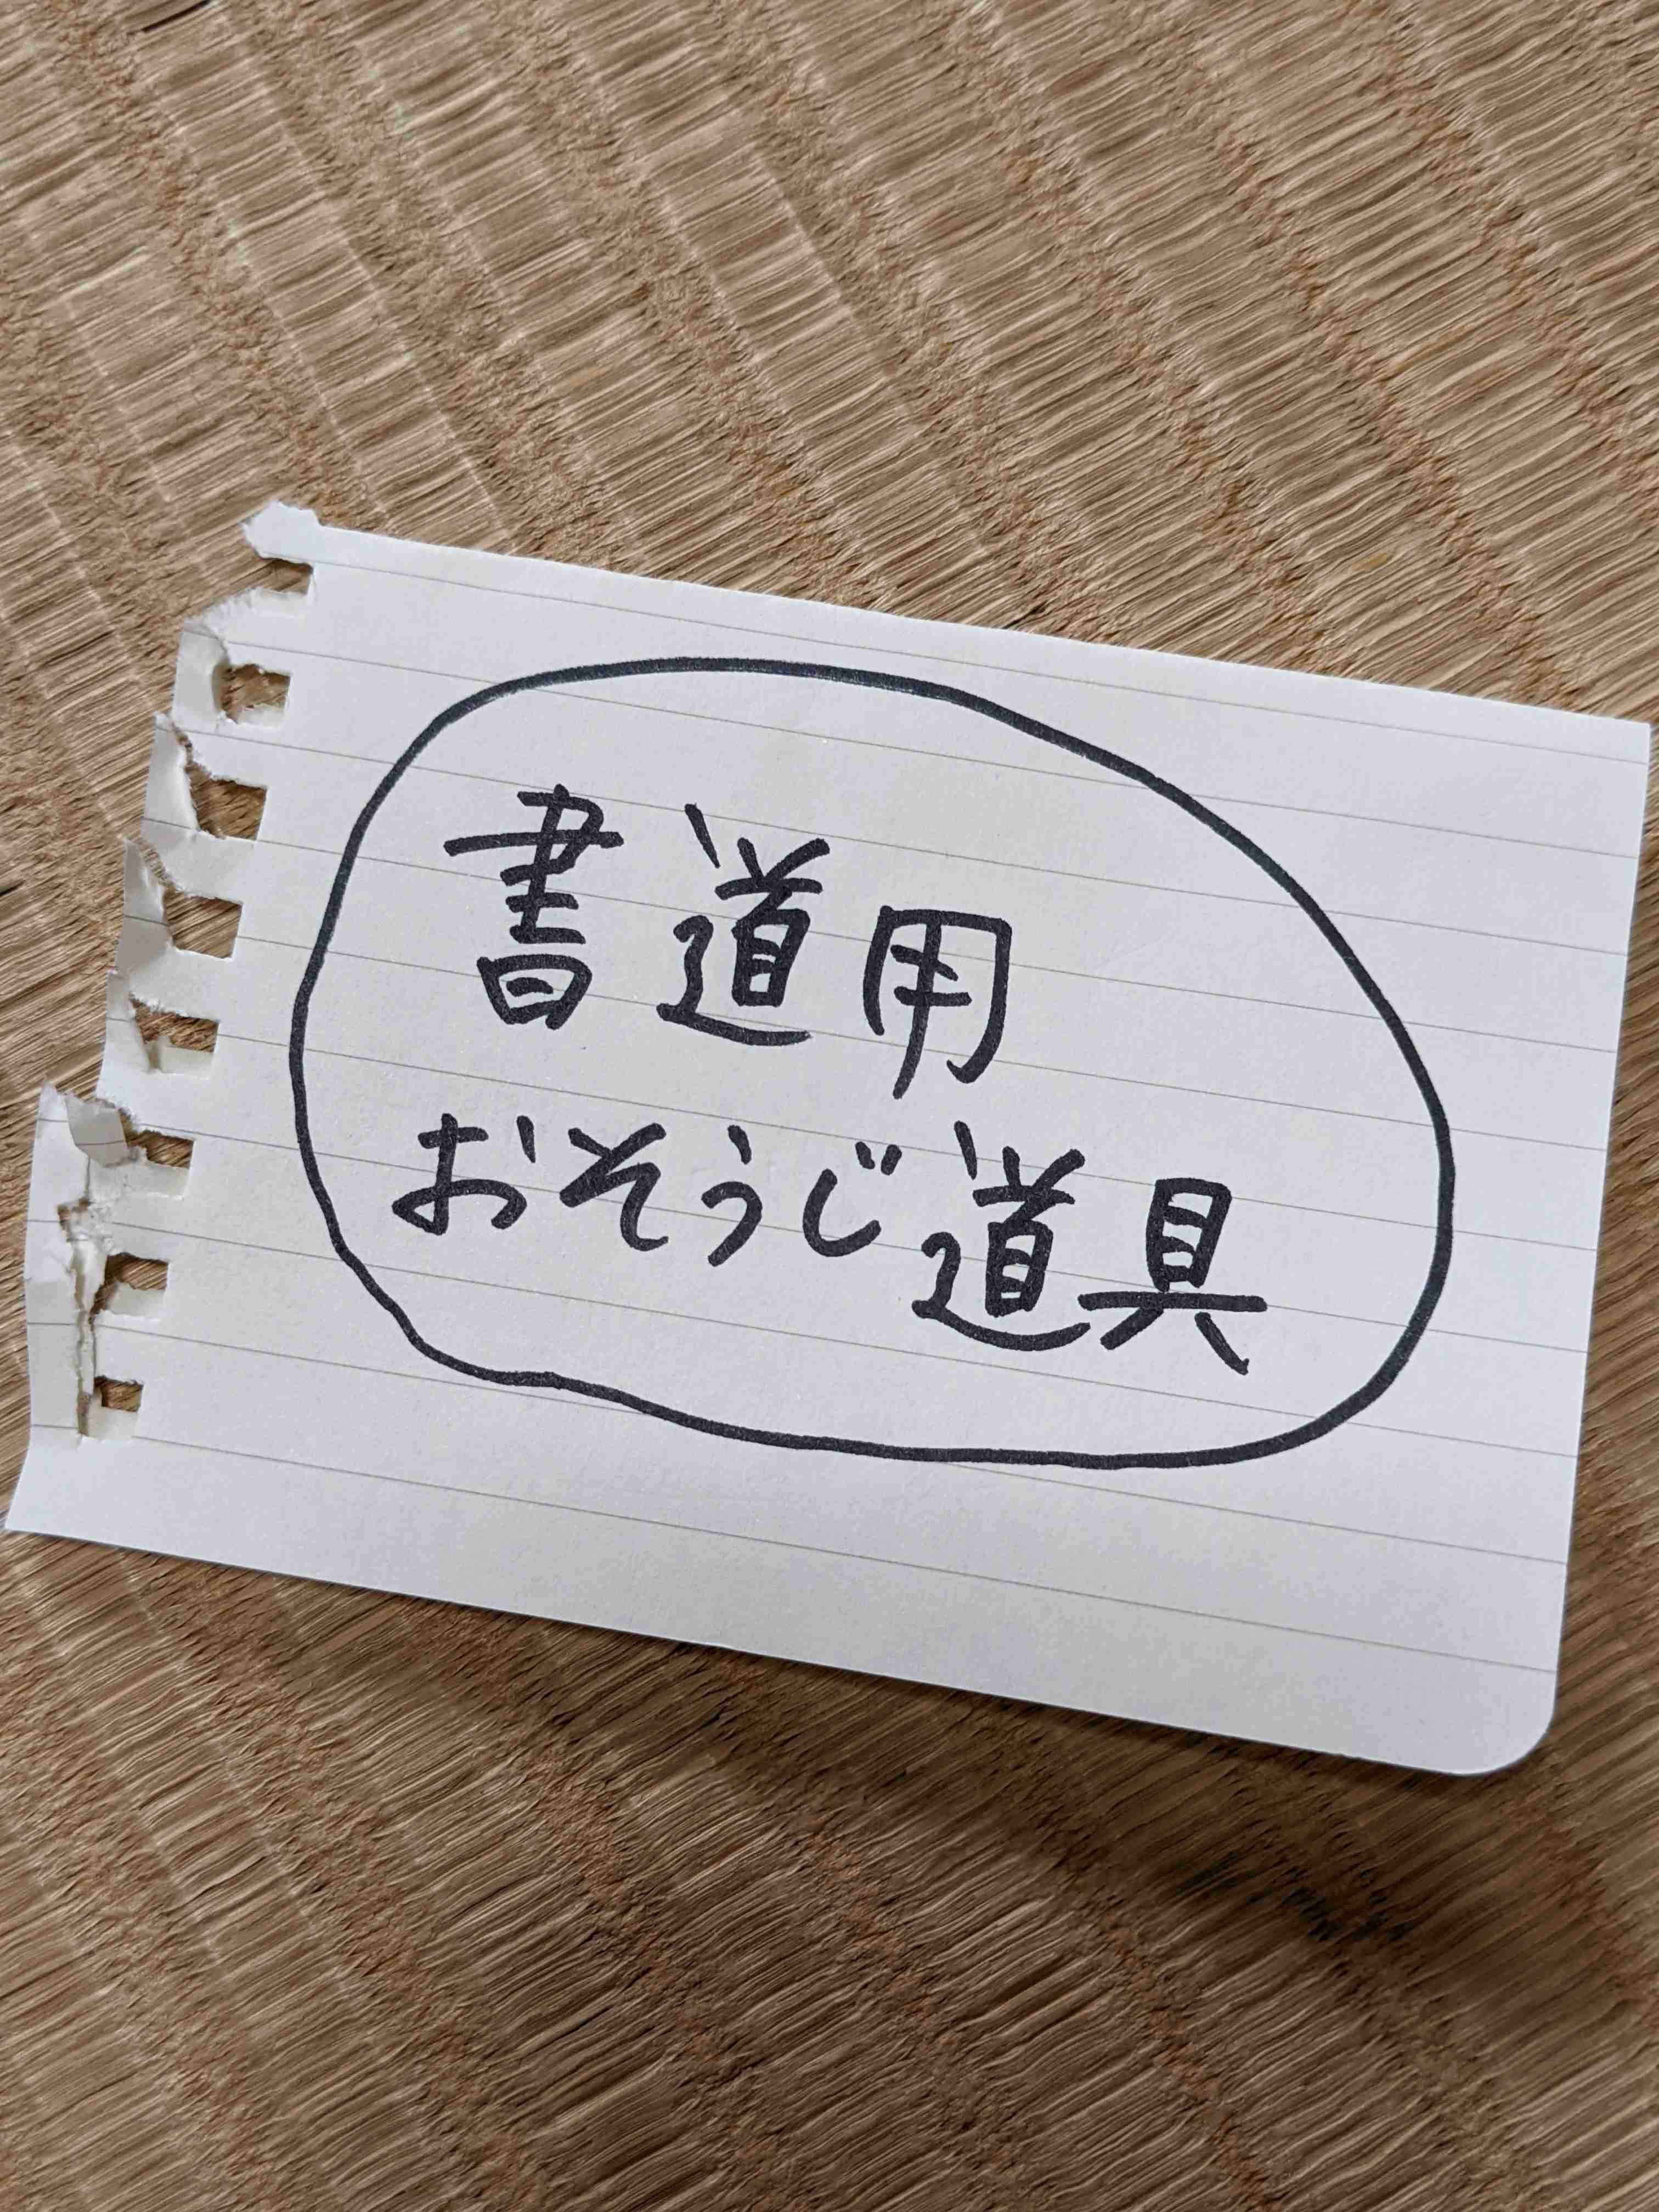 書道用
おそうじ道具